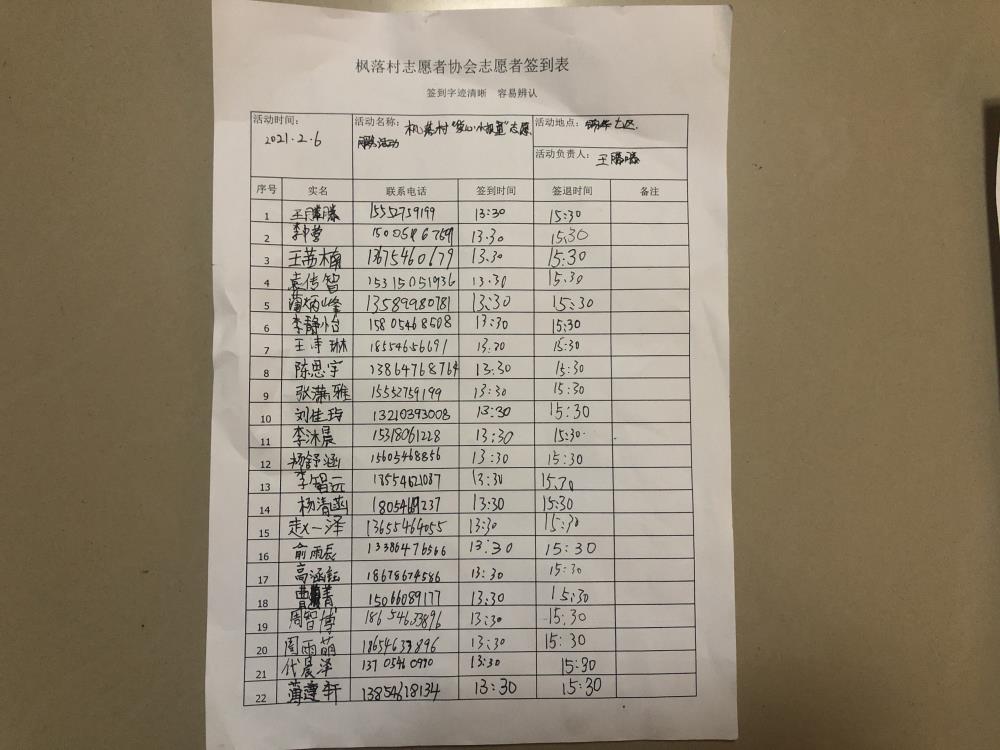 枫落村志愿者协会志愿者签到表
签到字迹清晰 容易辨认
活动时间: 2021.2.6
活动名称: 枫落村"爱心小报童"志愿
服务活动
活动地点:
活动负责人: 王滕滕
序号 实名 联系电话 签到时间 签退时间 备注
1 王滕滕 15552759199 13:30 15:30
2 13.30 15.30
3 王苏楠 13675460679 13.30 15:30
4 袁传智 15315051936 13:30 15.30
5 炳峰 13589980781 13:30 15:30
6 李静怡 15805468508 13:30 15:30
7 王诗琳 18554656691 13:20 15:30
8 陈思宇 13864768764 13:30 15:30
9 张潇雅 15552759199 13:30 15:30
10 刘佳玲 13210393008 13:30 15:30
11 李沐晨 15318061228 13:30 15:30
12 杨舒涵 15605468856 13:30 15:30
13 李智远 13554621087 13:30 15.30
14 杨清函 13:30 15:30
15 赵一泽 13655464055 13:30 15:30
16 俞雨辰 13386476566 13:30 15:30
17 高涵钰 18678674586 13:30 15:30
18 15066089177 13:30 15:30
19 周智博 18654633896 13:30 15:30
20 周雨萌 18654633896 13:30 15:30
21 代晨泽 13705460990 13:30 15:30
22 轩 13854618134 13:30 15:30